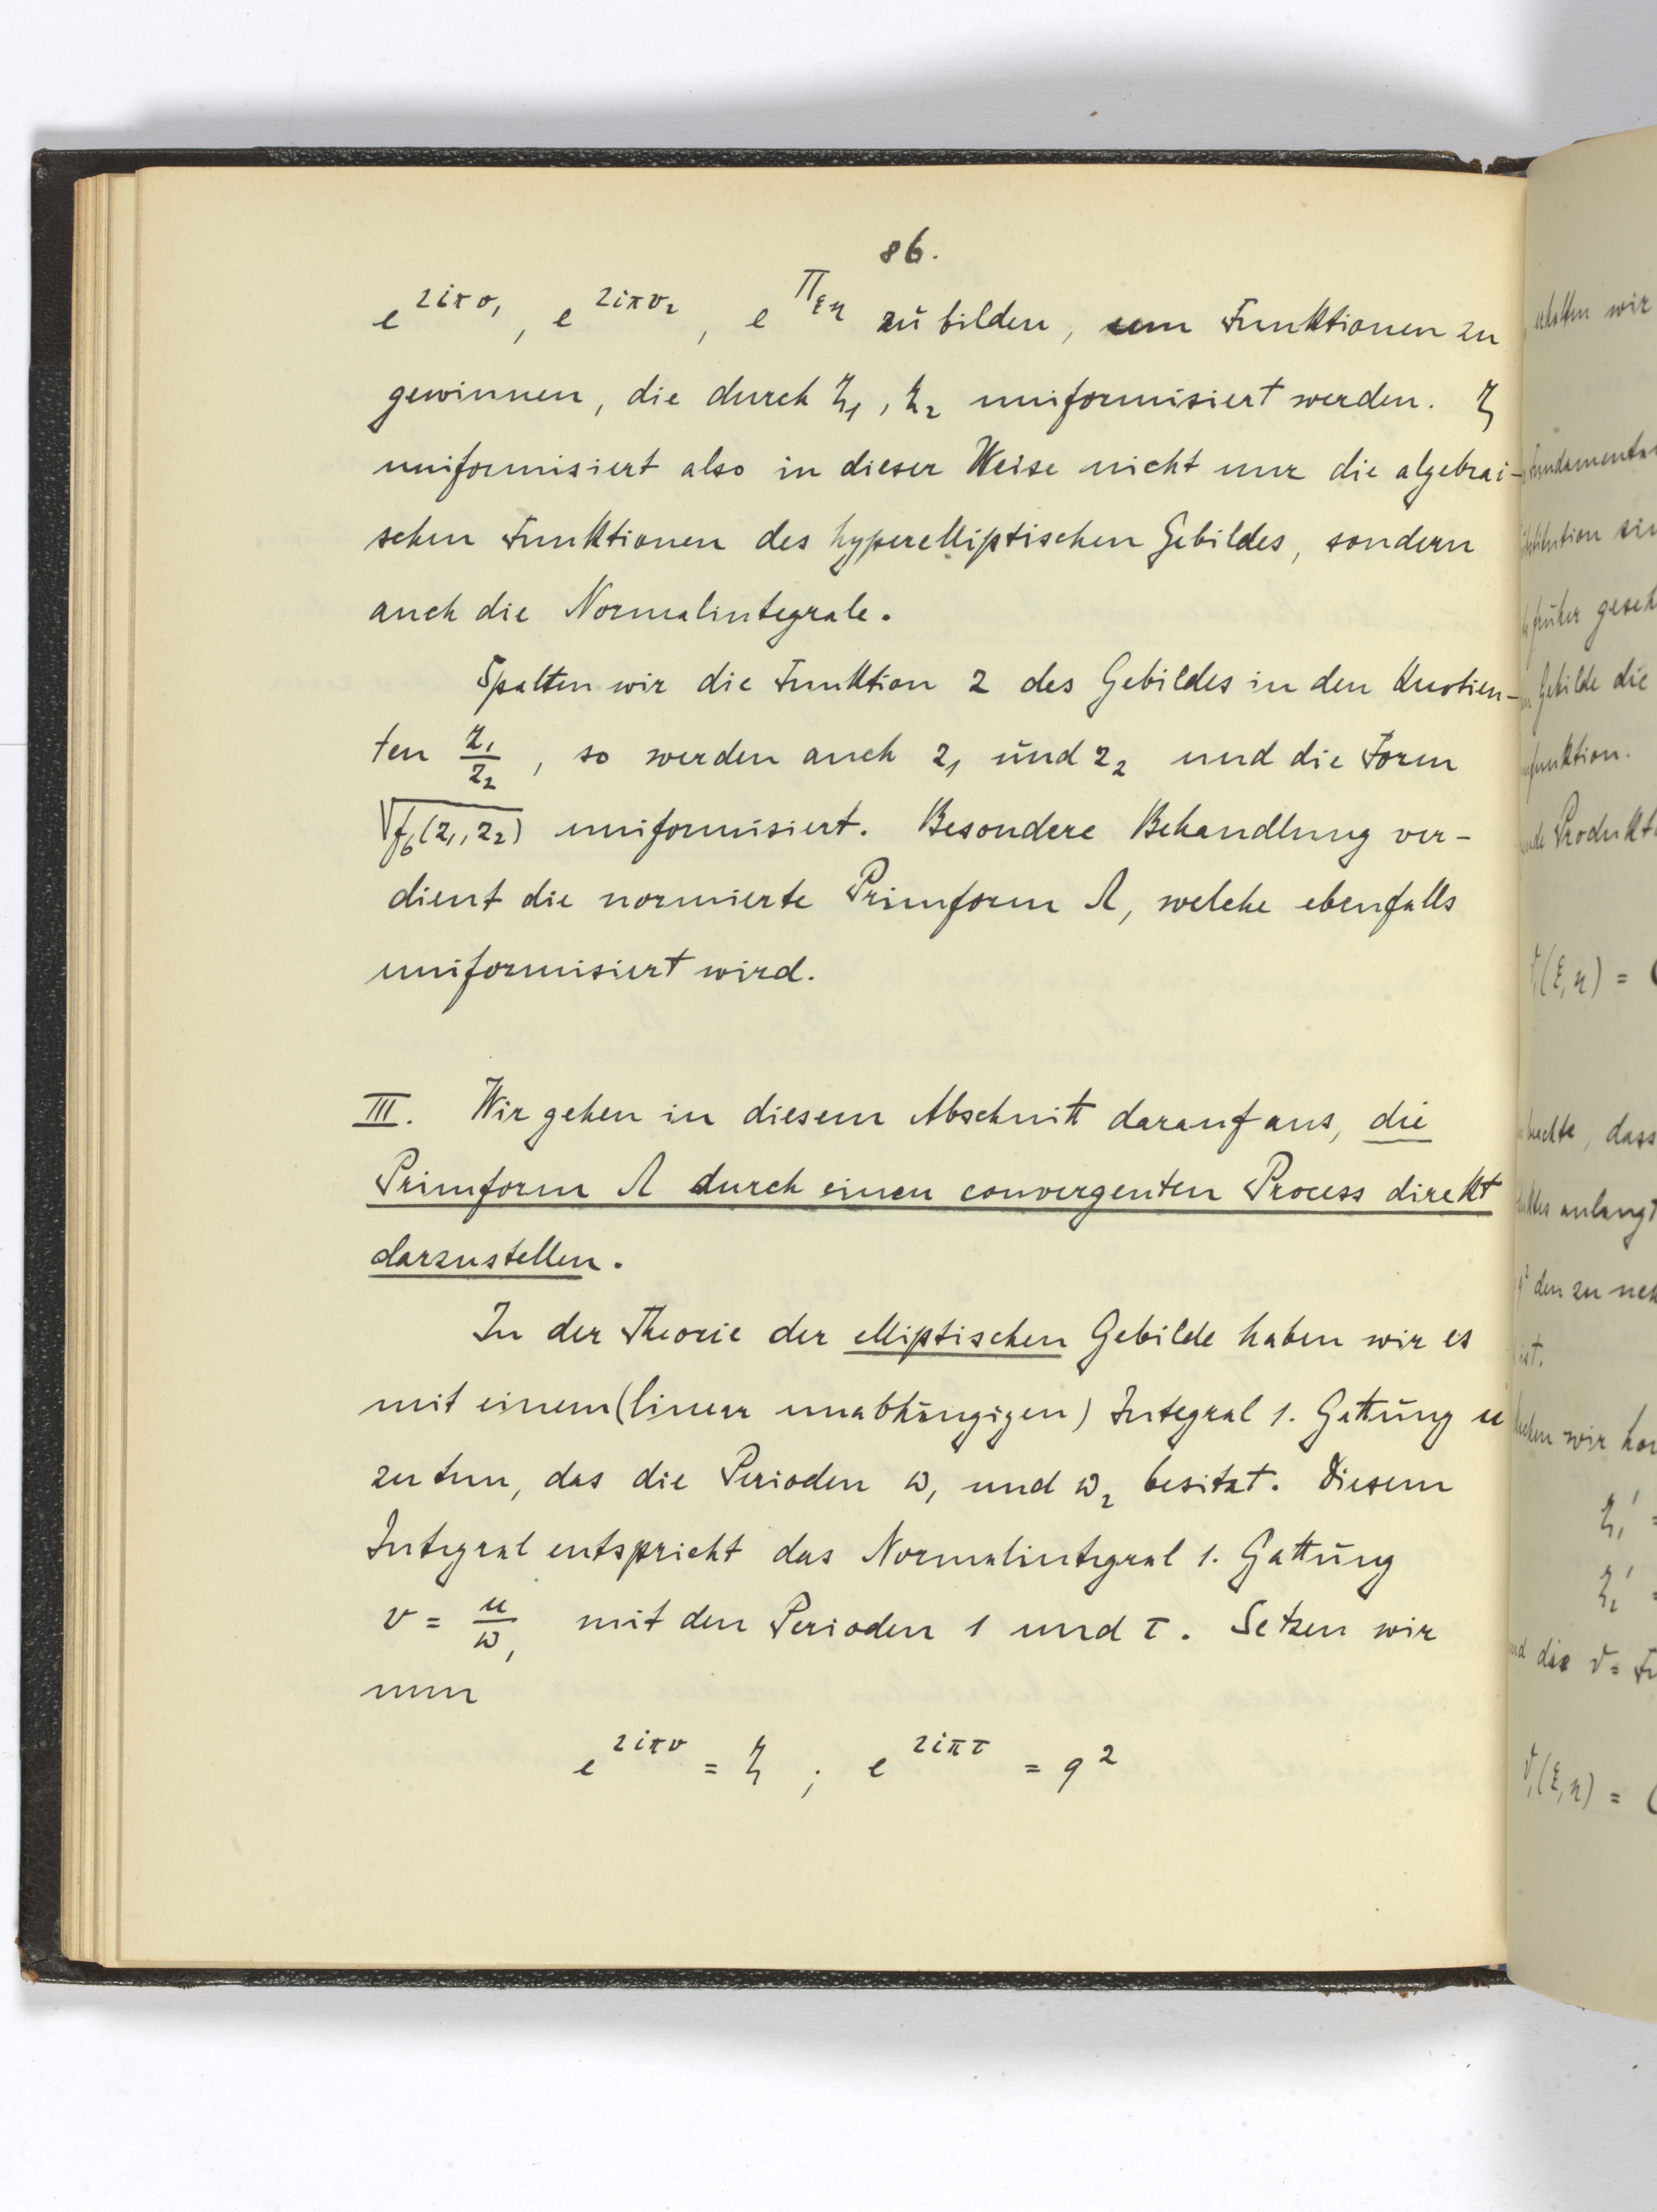 86.
e^{2iπv₁}, e^{2iπv₂}, e^{Π_{ξη}} zu bilden, um Funktionen zu
gewinnen, die durch ζ₁, ζ₂ uniformisiert werden. ζ
uniformisiert also in dieser Weise nicht nur die algebrai-
schen Funktionen des hyperelliptischen Gebildes, sondern
auch die Normalintegrale.
Spalten wir die Funktion z des Gebildes in den Quotien-
ten z₁/z₂, so werden auch z₁ und z₂ und die Form
√f₆(z₁, z₂) uniformisiert. Besondere Behandlung ver-
dient die normierte Primform Λ, welche ebenfalls
uniformisiert wird.
III. Wir gehen in diesem Abschnitt darauf aus, die
Primform Λ durch einen convergenten Process direkt
darzustellen.
In der Theorie der elliptischen Gebilde haben wir es
mit einem (linear unabhängigen) Integral 1. Gattung u
zu tun, das die Perioden ω₁ und ω₂ besitzt. Diesem
Integral entspricht das Normalintegral 1. Gattung
v = u/ω₁ mit den Perioden 1 und τ. Setzen wir
nun
e^{2iπv} = ζ ; e^{2iπτ} = q²
erhalten wir
früher
Gebilde die
funktion.
(ξ, η) =
dass
anlangt
den zu
ist.
wir
ζ₁' =
ζ₂' =
die
(ξ, η) =